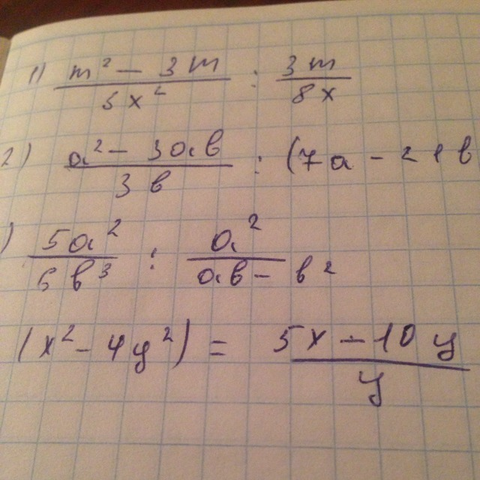 1) (m² - 3m)/(5x²) : (3m)/(8x)
2) (a² - 3ab)/(3b) : (7a - 21b
) (5a²)/(6b³) : (a²)/(ab - b²)
(x² - 4y²) = (5x - 10y)/(y)